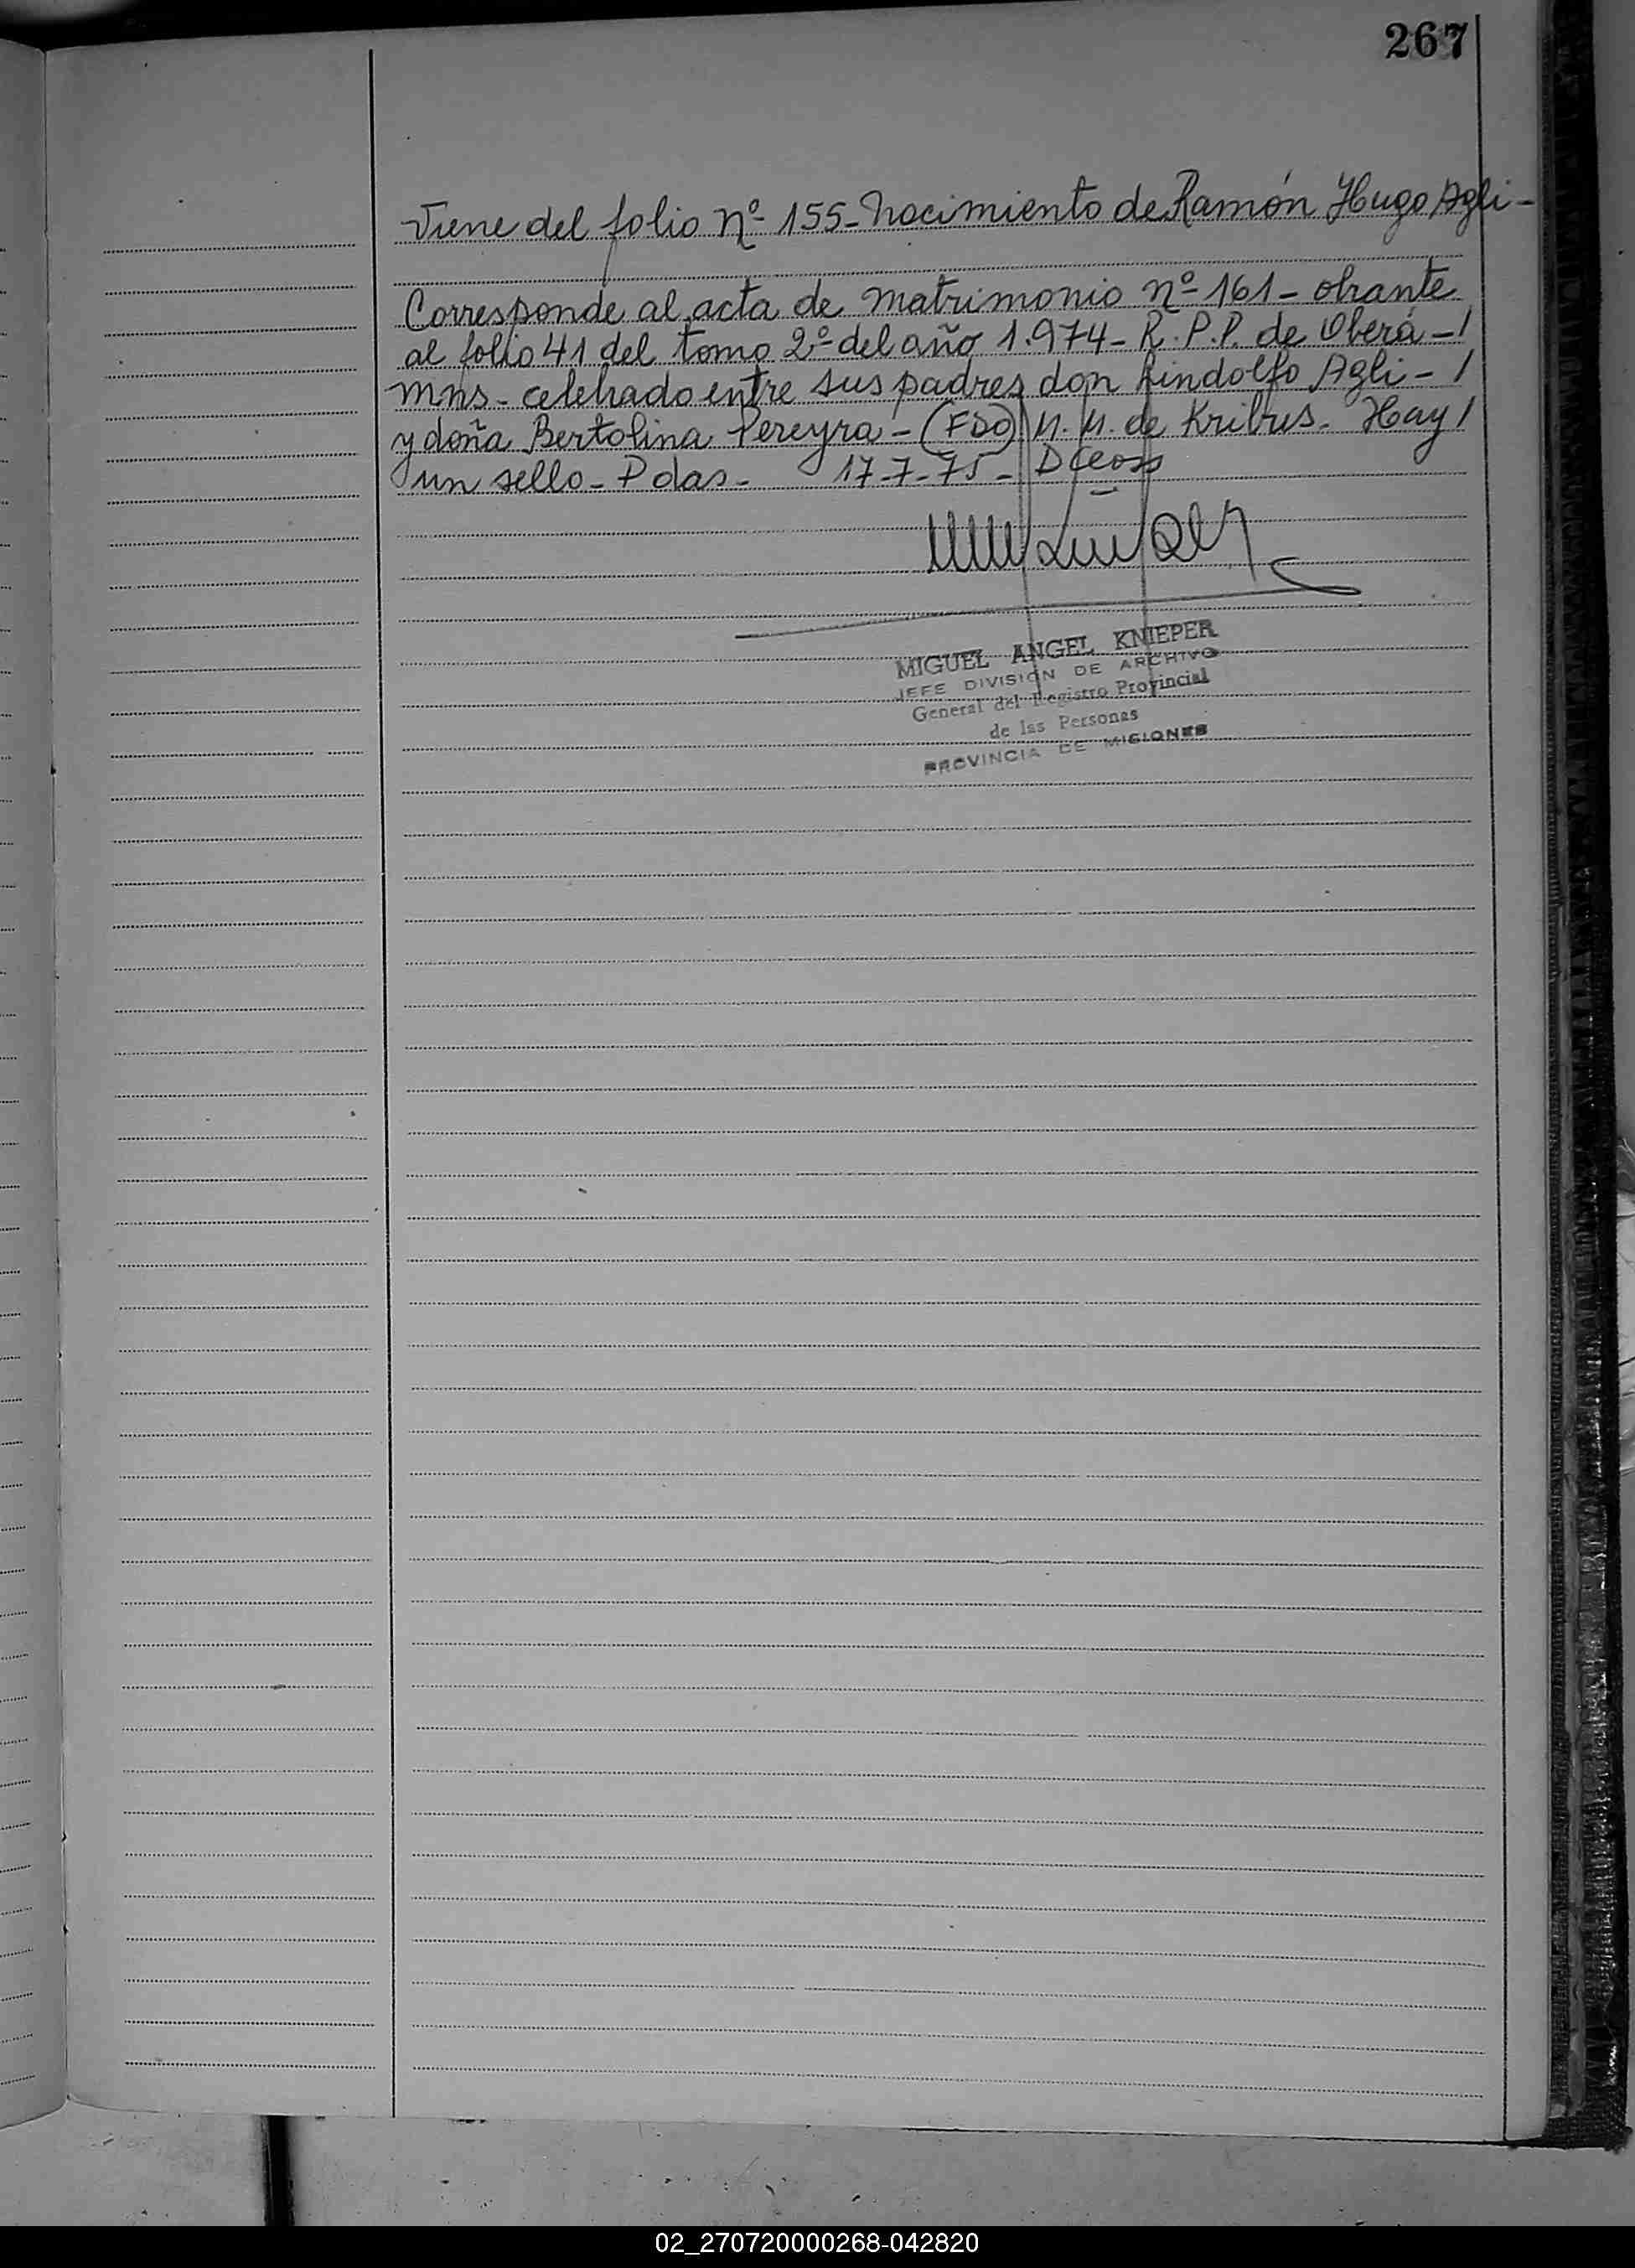 267
Viene del folio nº 155 - Nacimiento de Ramón Hugo Agli -
Corresponde al acta de matrimonio nº 161 - obrante
al folio 41 del tomo 2º del año 1.974 - R.P.P. de Oberá - /
mns - celebrado entre sus padres don Lindolfo Agli - /
y doña Bertolina Pereyra - (FDO) M. M. de Kribus. Hay /
un sello - Pdas - 17-7-75 -
MIGUEL ANGEL KNIEPER
JEFE DIVISIÓN DE ARCHIVO
General del Registro Provincial
de las Personas
PROVINCIA DE MISIONES
02_270720000268-042820